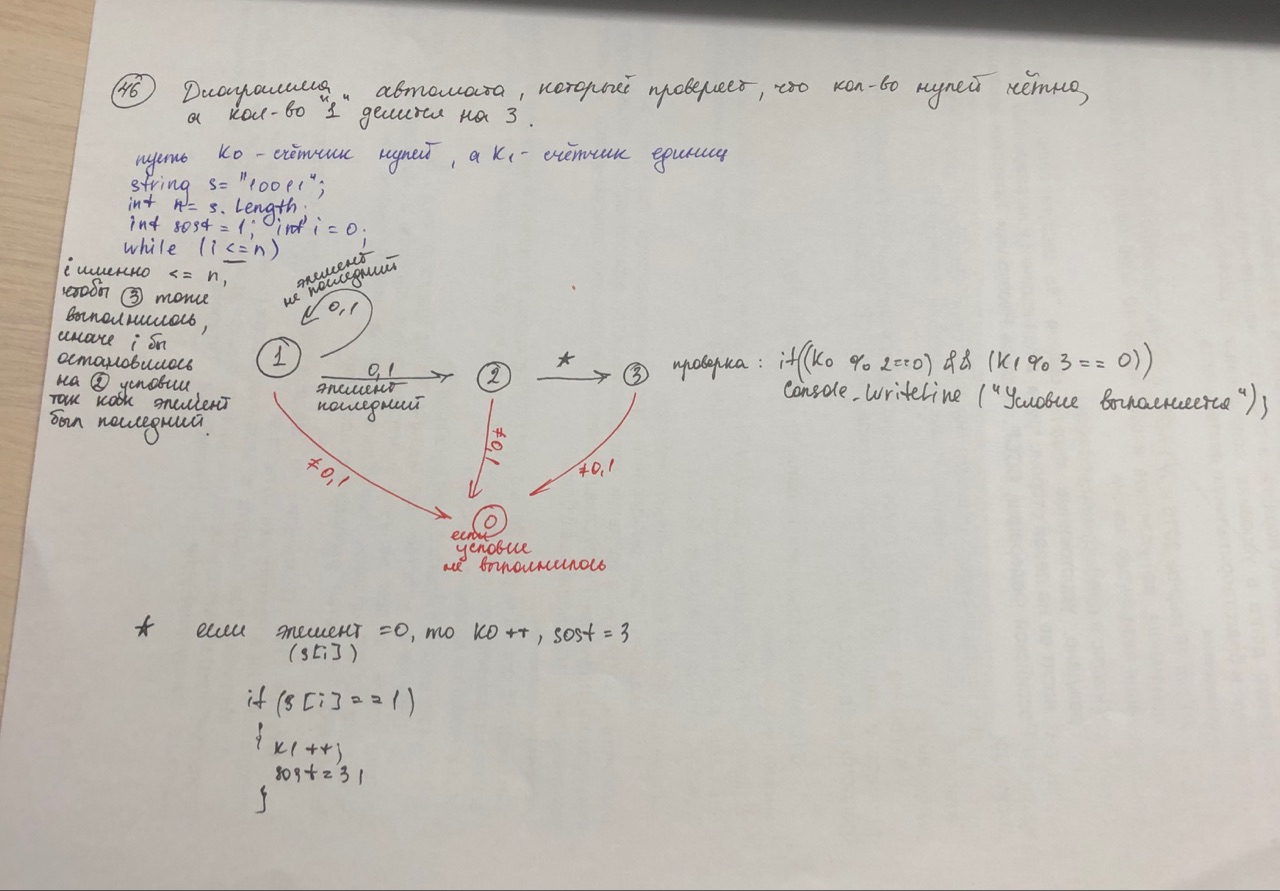 46 Диаграмма автомата, который проверяет, что кол-во нулей чётно,
а кол-во "1" делится на 3.
пусть K0 - счётчик нулей, а K1 - счётчик единиц
string s = "10011";
int n = s. Length;
int sost = 1; int i = 0;
while (i <= n)
i именно <= n,
чтобы 3 тоже
выполнилось,
иначе i бы
остановилось
на 2 условии,
так как элемент
был последний.
элемент
не последний
0,1
1
0,1
элемент
последний
2
*
3
проверка : if((K0 % 2==0) && (K1 % 3 == 0))
Console.WriteLine ("Условие выполняется");
≠0,1
≠0,1
≠0,1
0
если
условие
не выполнилось
* если элемент =0, то K0 ++, sost = 3
(s[i])
if (s[i] == 1)
{
K1 ++;
sost = 3;
}